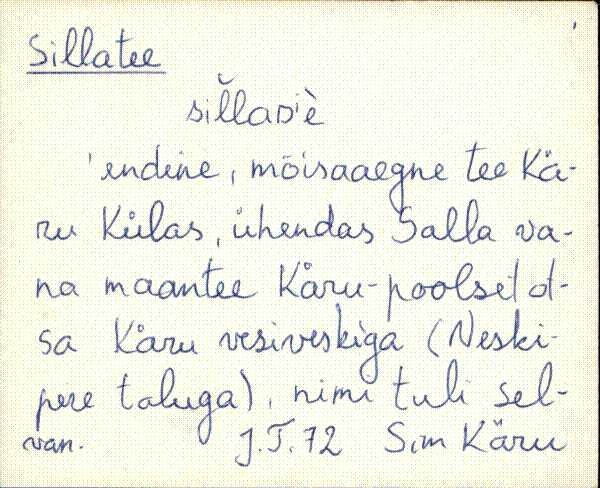 Sillatee
sil̆laᴅiè
'endine, mõisaaegne tee Kä-
ru Külas, ühendas Salla va-
na maantee Käru-poolset ot-
sa Käru vesiveskiga (Veski-
pere taluga), nimi tuli sel-
van. J.T.72 Sim Käru